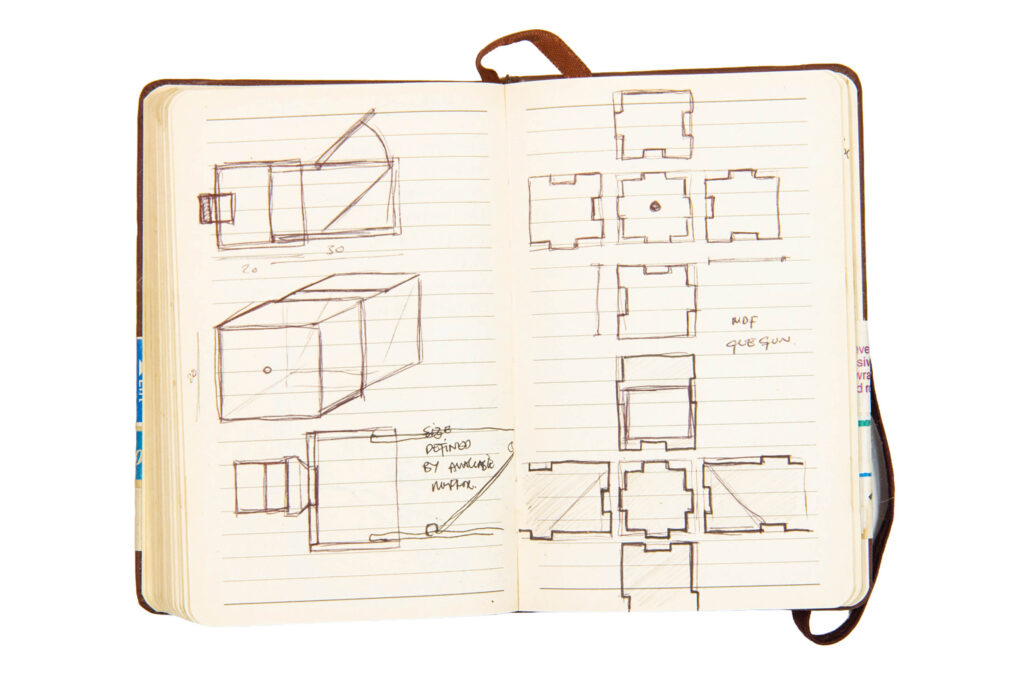 20
30
20
SIZE
DEFINED
BY AVAILABLE
MIRROR.
MDF
GLUE GUN.
eve
siv
wra
d r